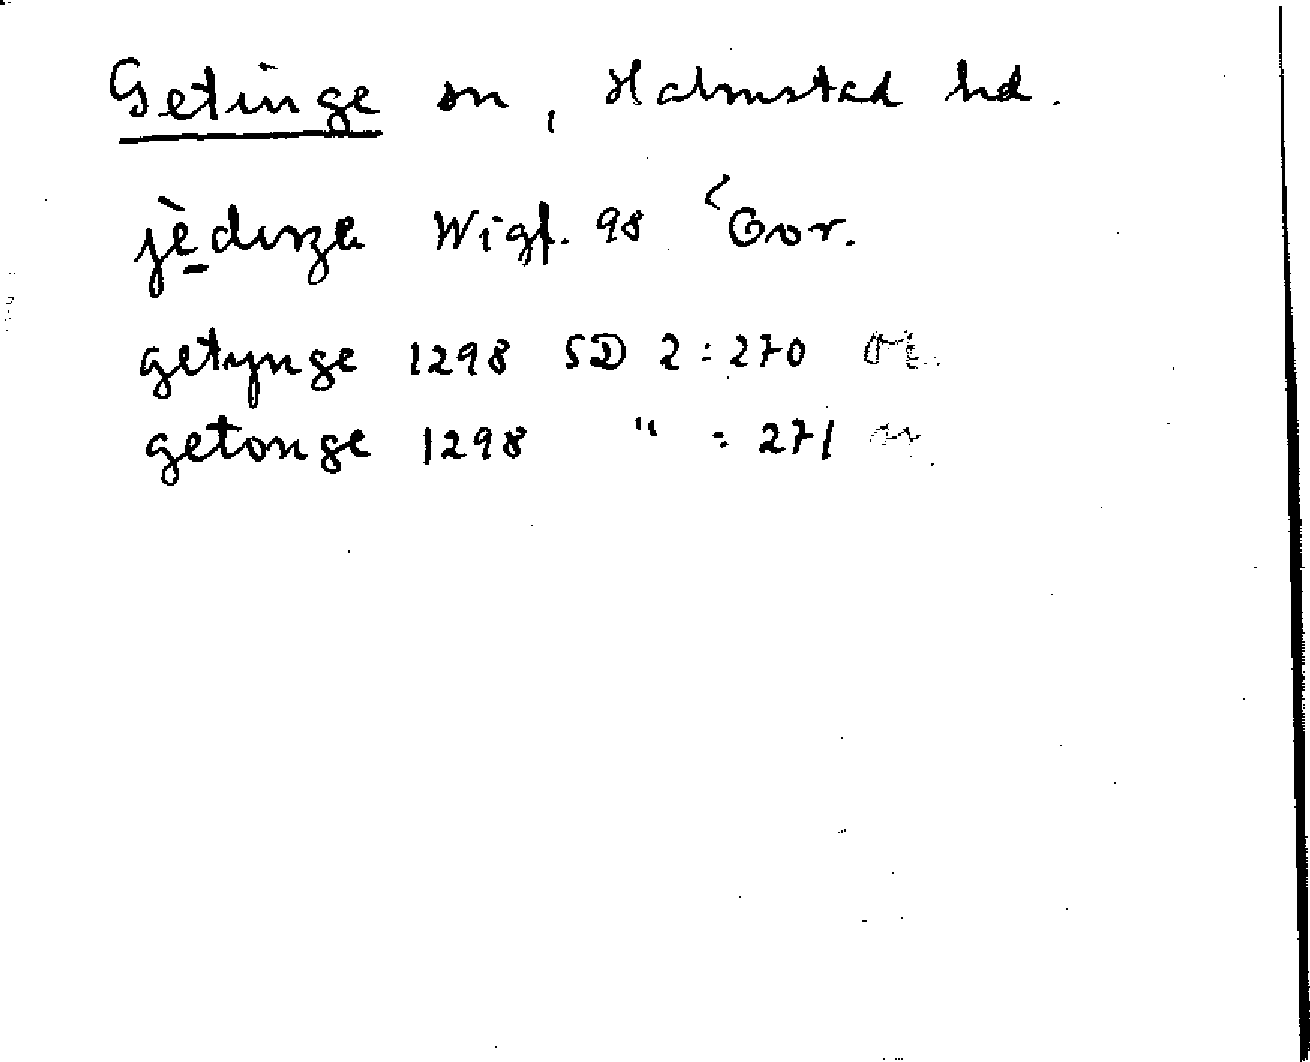 Getinge sn, Halmstad hd.
Wigf. 98 < Gor.
getynge 1298 SD 2:270 Or.
getonge 1298 " :271 sn